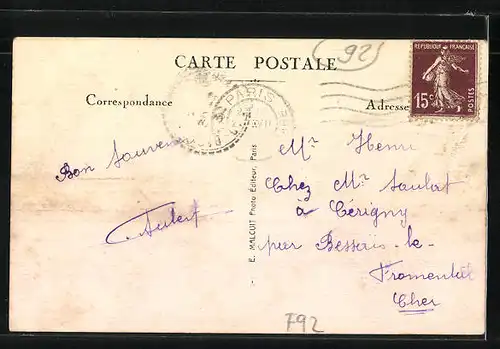 (92)
CARTE POSTALE
RÉPUBLIQUE FRANÇAISE
15c
POSTES
PARIS
Correspondance
Adresse
Bon Souvenir
E. MALCUIT Photo Éditeur, Paris
Mr Henri
Chez Mr
à Cérigny
par Bessais-le-
Fromental
Cher
F92